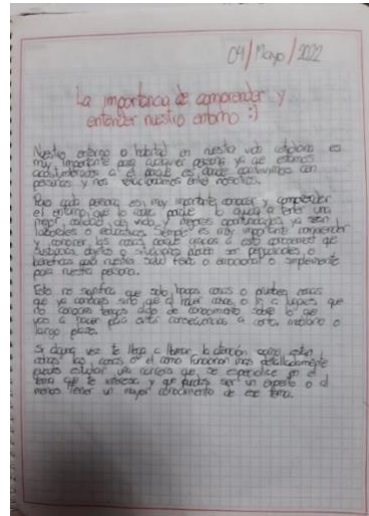 04/Mayo/2022
La importancia de comprender y
entender nuestro entorno :)
Nuestro entorno o habitat en nuestra vida cotidiana es
muy importante para cualquier persona ya que estamos
acostumbrados a el porque es donde convivimos con
personas y nos relacionamos entre nosotros.
Para cada persona es muy importante conocer y comprender
el entorno que lo rodea porque lo ayuda a tener una
mejor calidad de vida y mejores oportunidades ya sean
laborales o educativas. Siempre es muy importante comprender
y conocer las cosas porque gracias a esto conocemos que
sustancia, objeto o situaciones pueden ser perjudiciales o
para nuestra salud o emocional o simplemente
para nuestra persona.
Esto no significa que solo hagas cosas o pruebes cosas
que ya conoces sino que al hacer cosas o ir a lugares que
no conozcas tengas algo de conocimiento sobre lo que
vas a hacer para evitar consecuencias a corto, mediano o
largo plazo.
Si alguna vez te llega a llamar la atención
las cosas o el como funcionan mas detalladamente
puedes estudiar una carrera que se especialice en el
tema que te interesa y que puedas ser un experto o al
menos tener un mayor conocimiento de ese tema.